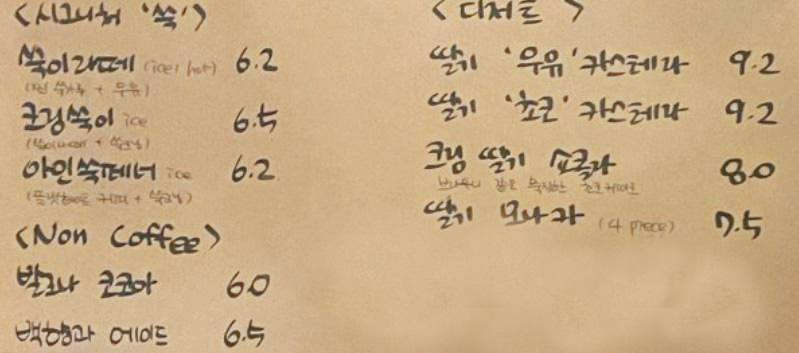 <시그니처 '쑥'>
쑥이라떼 (ice/hot) 6.2
크림쑥이 ice 6.5
아인쑥페너 ice 6.2
<Non Coffee>
발로나 코코아 6.0
백향과 에이드 6.5
<디저트>
딸기 '우유' 카스테라 9.2
딸기 '초코' 카스테라 9.2
크림 딸기 쇼콜라 8.0
브라우니 같은 묵직한 초코케이크
딸기 모나카 (4 piece) 7.5